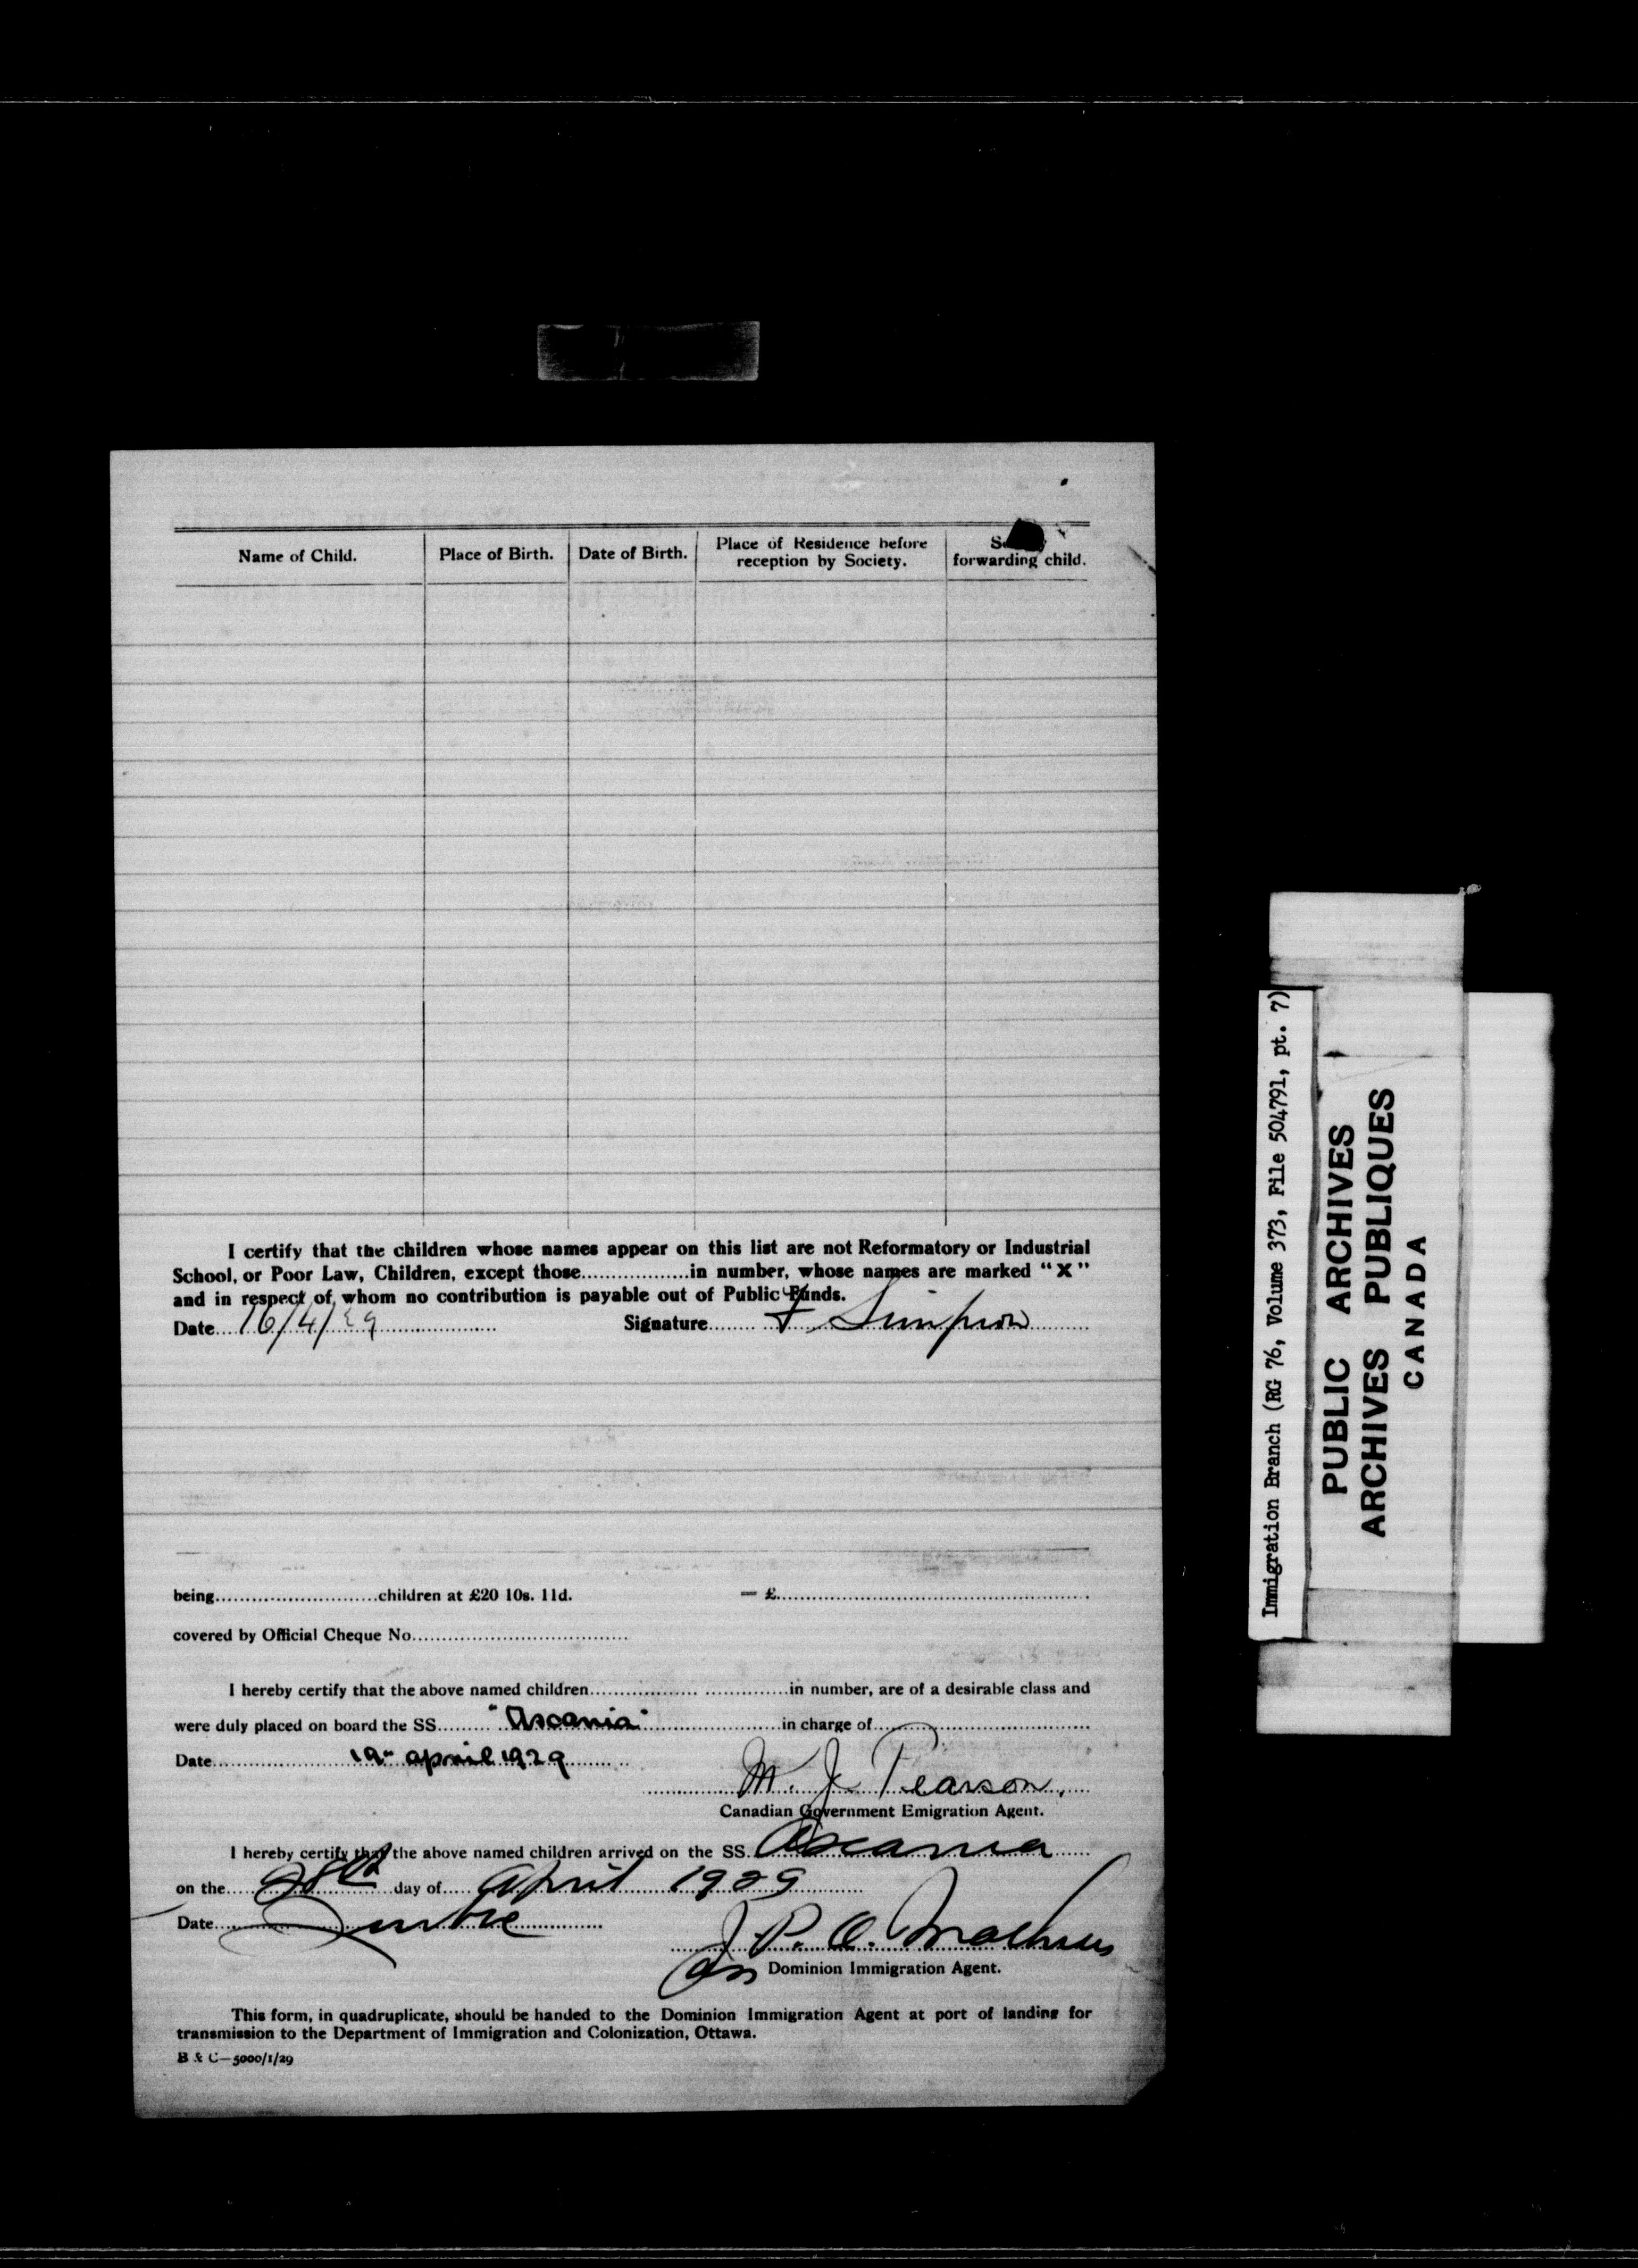 Name of Child. Place of Birth. Date of Birth. Place of Residence before reception by Society. forwarding child.
I certify that the children whose names appear on this list are not Reformatory or Industrial
School, or Poor Law, Children, except those..................in number, whose names are marked "X"
and in respect of whom no contribution is payable out of Public Funds.
Date 16/4/29 Signature F Simpson
being...........................children at £20 10s. 11d. = £
covered by Official Cheque No.
I hereby certify that the above named children................................in number, are of a desirable class and
were duly placed on board the SS. "Ascania" in charge of
Date 19th april 1929
M. J. Pearson
Canadian Government Emigration Agent.
I hereby certify that the above named children arrived on the SS. Ascania
on the 28th day of April 1929
Date
J. P. O. Mathews
Dominion Immigration Agent.
This form, in quadruplicate, should be handed to the Dominion Immigration Agent at port of landing for
transmission to the Department of Immigration and Colonization, Ottawa.
B & C—5000/1/29
Immigration Branch (RG 76, Volume 373, File 504791, pt. 7)
PUBLIC ARCHIVES
ARCHIVES PUBLIQUES
CANADA